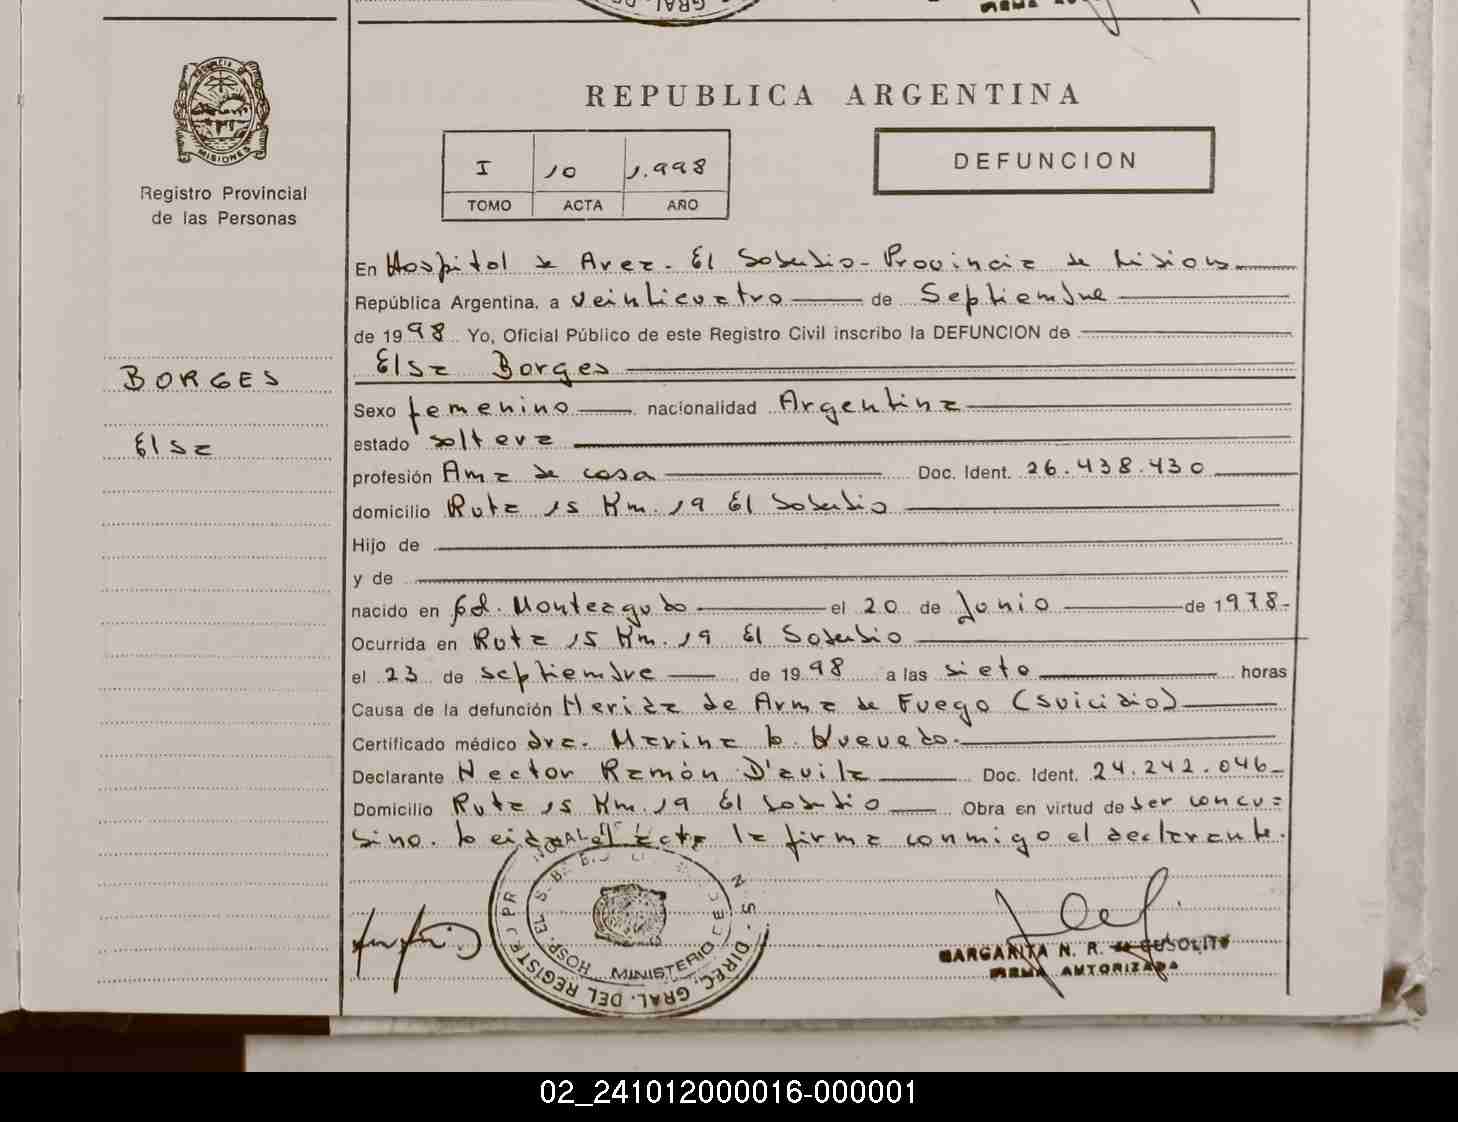 REPUBLICA ARGENTINA
PROVINCIA DE
MISIONES
Registro Provincial
de las Personas
I 10 1.998
TOMO ACTA AÑO
DEFUNCION
BORGES
Elsa
En Hospital de Area - El Soberbio - Provincia de Misiones
República Argentina, a veinticuatro de Septiembre
de 1998 Yo, Oficial Público de este Registro Civil inscribo la DEFUNCION de
Elsa Borges
Sexo femenino nacionalidad Argentina
estado soltera
profesión Ama de casa Doc. Ident. 26.438.430
domicilio Ruta 15 Km. 19 El Soberbio
Hijo de
y de
nacido en Cd. Monteagudo el 20 de Junio de 1978-
Ocurrida en Ruta 15 Km. 19 El Soberbio
el 23 de septiembre de 1998 a las siete horas
Causa de la defunción Herida de Arma de Fuego (suicidio)
Certificado médico dra. Marina Quevedo.
Declarante Hector Ramón D'avila Doc. Ident. 24.242.046-
Domicilio Ruta 15 Km. 19 El Soberbio Obra en virtud de ser concu=
bino. Leida el acta la firma conmigo el declarante.
HOSP. EL S. MINISTERIO DE
DIREC. GRAL. DEL REGISTR
MARGARITA N. R. de GUSOLITO
FIRMA AUTORIZADA
02_241012000016-000001